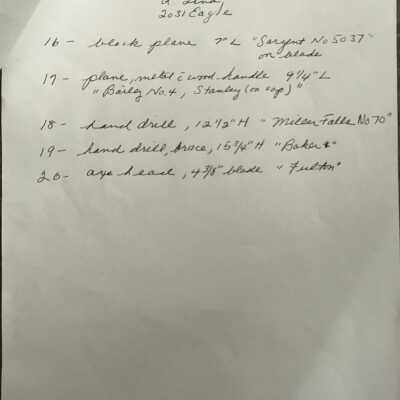 2031 Eagle
16 - block plane 7" L "Sargent No 5037"
on blade
17 - plane, metal c̄ wood handle 9 1/4" L
"Bailey No. 4, Stanley (on cap)"
18 - hand drill, 12 1/2" H "Millers Falls No 70"
19 - hand drill, brace, 15 3/4" H "Baker"
20 - axe head, 4 3/8" blade "Fulton"